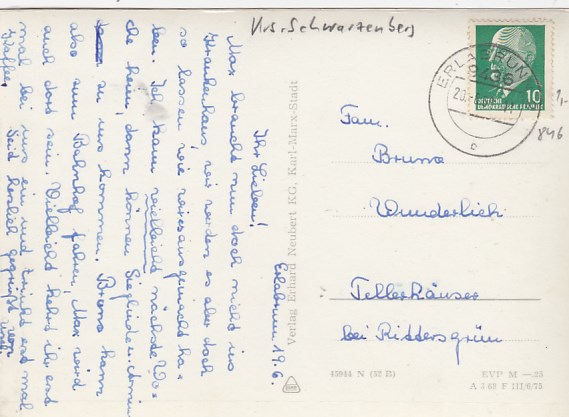 Krs. Schwarzenberg
ERLABRUNN
9436
20.
c
DEUTSCHE
DEMOKRATISCHE REPUBLIK
10
1,-
846
Erlabrunn 19.6.
Ihr Lieben!
Max braucht nun doch nicht ins
Krankenhaus, wir werden es aber doch
so lassen wie wir es ausgemacht ha-
ben. Ich kann vielleicht nächste Wo-
che heim, dann können Sieglinde u. Armin
zu uns kommen. Bruno kann
also zum Bahnhof fahren, Max wird
auch dort sein. Vielleicht kehrt ihr erst
mal bei uns ein und trinkt erst mal
Kaffee. Seid herzlich gegrüßt von
uns
Verlag Erhard Neubert KG, Karl-Marx-Stadt
Fam.
Bruno
Wunderlich
Tellerhäuser
bei Rittersgrün
EVP M —.25
A 2 68 F III/6/75